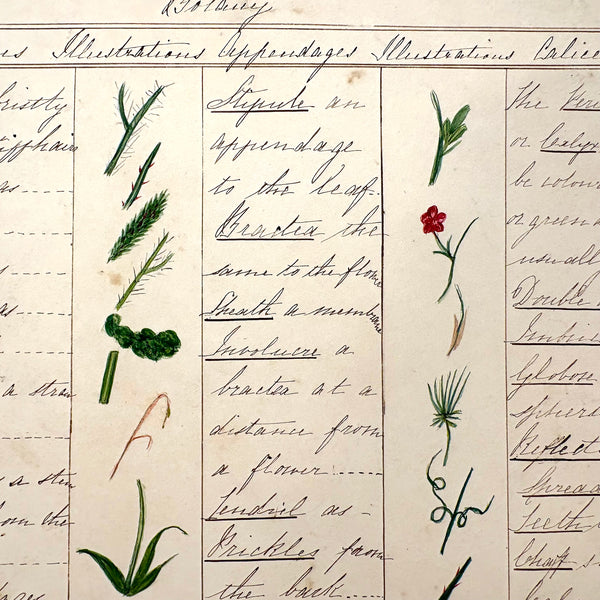 Botany
Illustrations Appendages Illustrations
ristly
iffhairs
as
as
a stem
a stem
om the
Stipule an
appendage
to the leaf.
Bractea the
same to the flower
Sheath a membrane
Involucre a
bractea at a
distance from
a flower......
Tendril as -
Prickles from
the bark......
The
or Calyx
be colour
or green
usually
Double
Imbric
Globose
spheric
Reflect
Spread
Teeth
Chaff